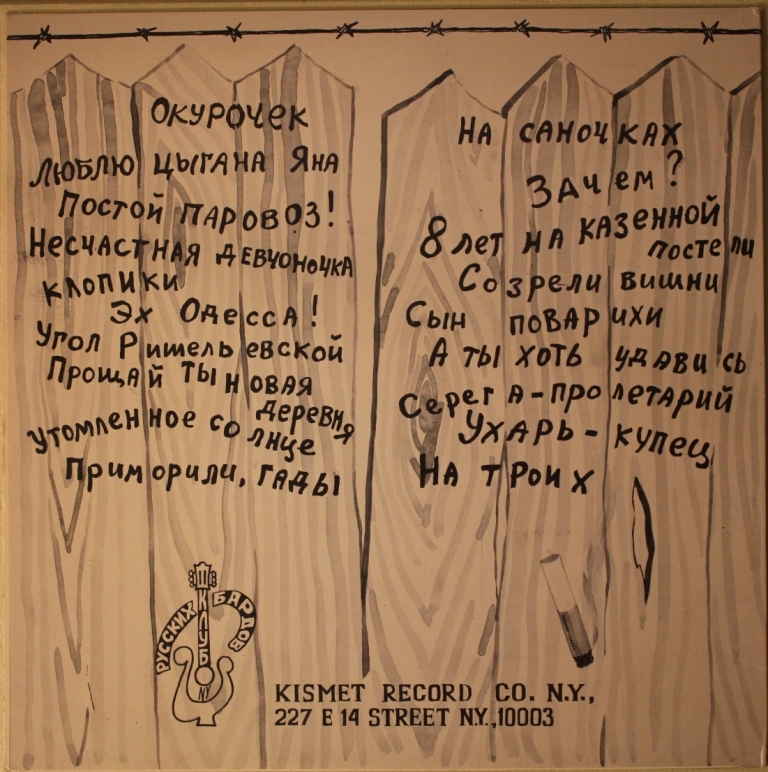 ОКУРОЧЕК
ЛЮБЛЮ ЦЫГАНА ЯНА
ПОСТОЙ ПАРОВОЗ!
НЕСЧАСТНАЯ ДЕВЧОНОЧКА
КЛОПИКИ
ЭХ ОДЕССА!
УГОЛ РИШЕЛЬЕВСКОЙ
ПРОЩАЙ ТЫ НОВАЯ
ДЕРЕВНЯ
УТОМЛЕННОЕ СОЛНЦЕ
ПРИМОРИЛИ, ГАДЫ
НА САНОЧКАХ
ЗАЧЕМ?
8 ЛЕТ НА КАЗЕННОЙ
ПОСТЕЛИ
СОЗРЕЛИ ВИШНИ
СЫН ПОВАРИХИ
А ТЫ ХОТЬ УДАВИСЬ
СЕРЕГА-ПРОЛЕТАРИЙ
УХАРЬ-КУПЕЦ
НА ТРОИХ
РУССКИХ КЛУБ БАРДОВ
NY
KISMET RECORD CO. N.Y.,
227 E 14 STREET N.Y.,10003